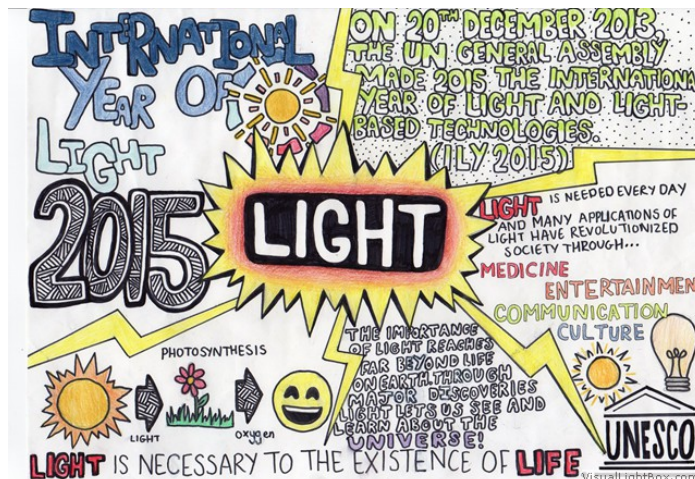 INTERNATIONAL
YEAR OF
LIGHT
2015
ON 20TH DECEMBER 2013,
THE UN GENERAL ASSEMBLY
MADE 2015 THE INTERNATION
YEAR OF LIGHT AND LIGHT-
BASED TECHNOLOGIES.
(ILY 2015))
LIGHT
LIGHT IS NEEDED EVERY DAY
AND MANY APPLICATIONS OF
LIGHT HAVE REVOLUTIONIZED
SOCIETY THROUGH...
MEDICINE
ENTERTAINMEN
COMMUNICATION
CULTURE
PHOTOSYNTHESIS
LIGHT
oxygen
THE IMPORTANCE
OF LIGHT REACHES
FAR BEYOND LIFE
ON EARTH. THROUGH
MAJOR DISCOVERIES
LIGHT LETS US SEE AND
LEARN ABOUT THE
UNIVERSE!
UNESCO
LIGHT IS NECESSARY TO THE EXISTENCE OF LIFE
VisualLightBox.com